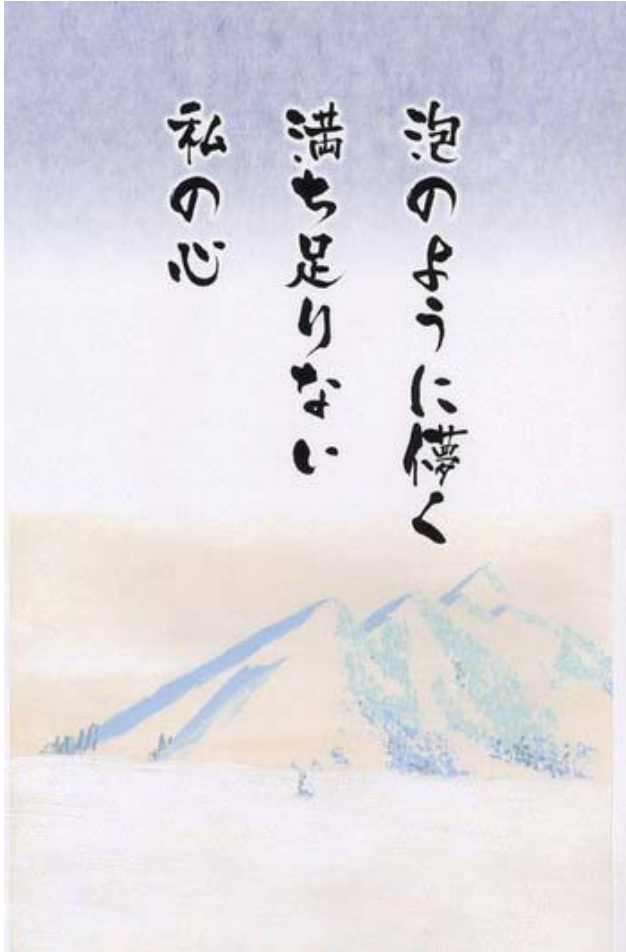 泡のように儚く
満ち足りない
私の心